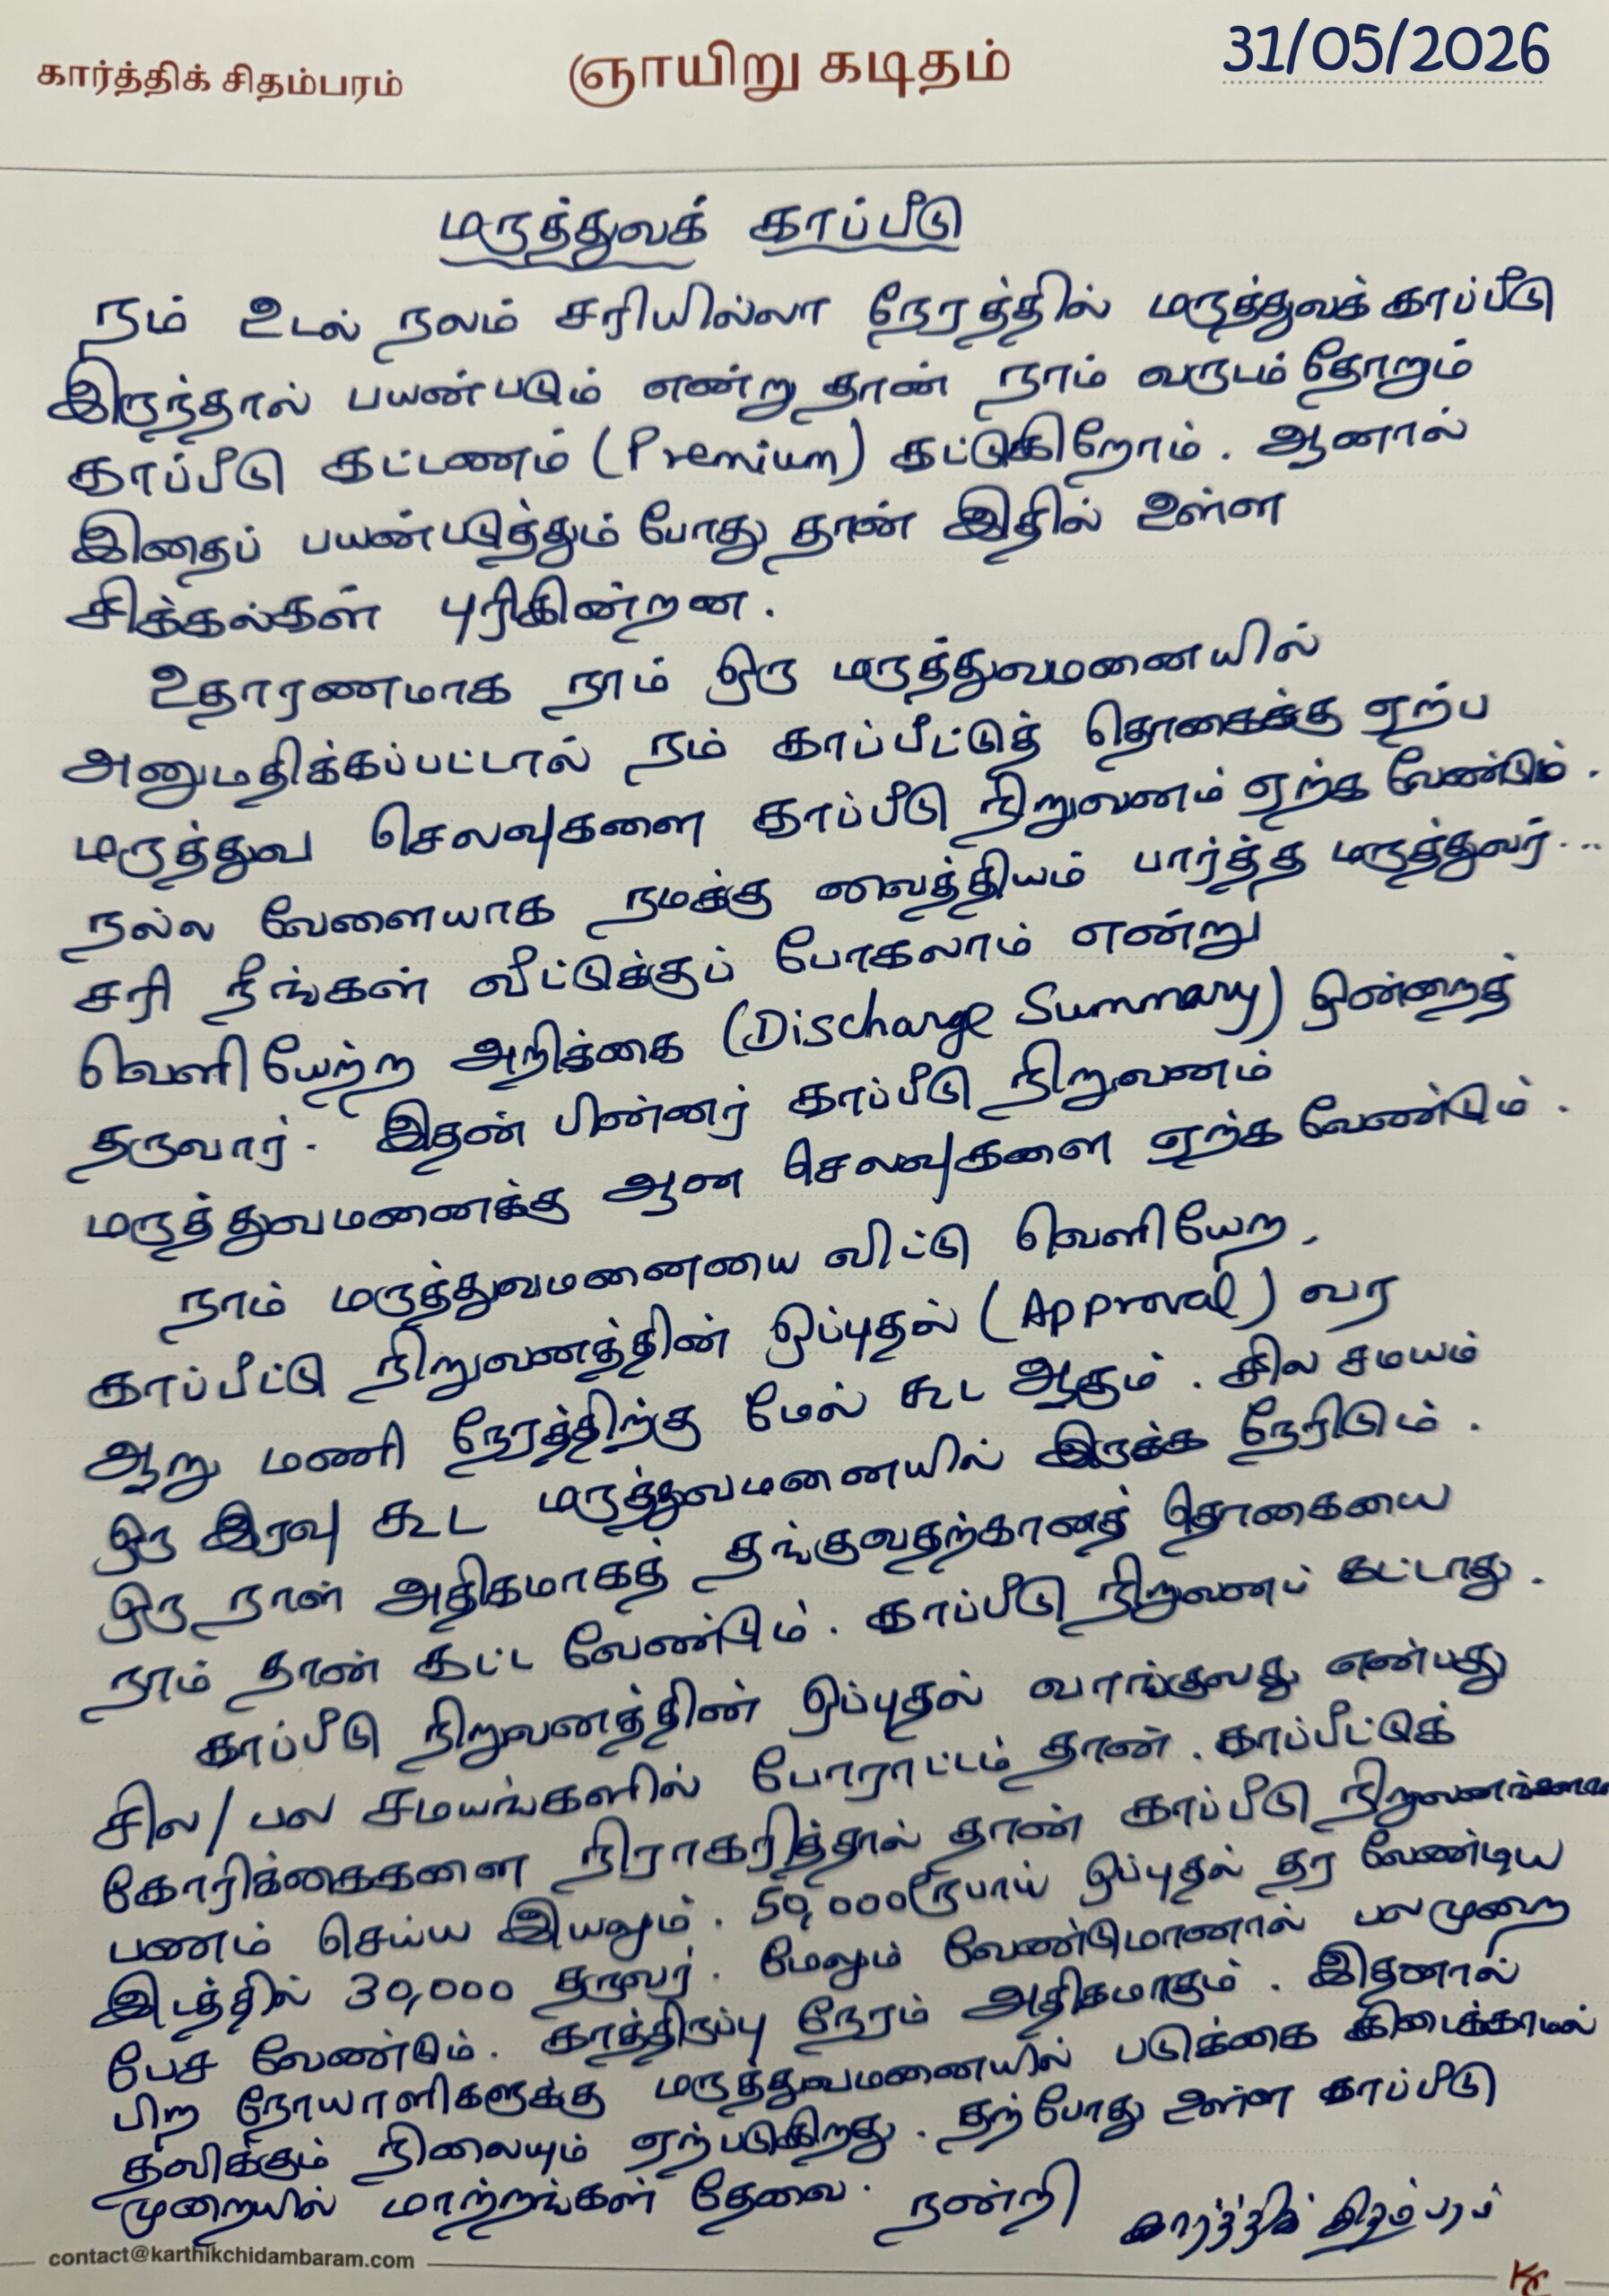 கார்த்திக் சிதம்பரம்
ஞாயிறு கடிதம்
31/05/2026
மருத்துவக் காப்பீடு
நம் உடல் நலம் சரியில்லா நேரத்தில் மருத்துவக் காப்பீடு
இருந்தால் பயன்படும் என்று தான் நாம் வருடம் தோறும்
காப்பீடு கட்டணம் (Premium) கட்டுகிறோம். ஆனால்
இதைப் பயன்படுத்தும் போது தான் இதில் உள்ள
சிக்கல்கள் புரிகின்றன.
உதாரணமாக நாம் ஒரு மருத்துவமனையில்
அனுமதிக்கப்பட்டால் நம் காப்பீட்டுத் தொகைக்கு ஏற்ப
மருத்துவ செலவுகளை காப்பீடு நிறுவனம் ஏற்க வேண்டும்.
நல்ல வேளையாக நமக்கு வைத்தியம் பார்த்த மருத்துவர்...
சரி நீங்கள் வீட்டுக்குப் போகலாம் என்று
வெளியேற்ற அறிக்கை (Discharge Summary) ஒன்றைத்
தருவார். இதன் பின்னர் காப்பீடு நிறுவனம்
மருத்துவமணைக்கு ஆன செலவுகளை ஏற்க வேண்டும்.
நாம் மருத்துவமனையை விட்டு வெளியேற,
காப்பீட்டு நிறுவணத்தின் ஒப்புதல் (Approval) வர
ஆறு மணி நேரத்திற்கு மேல் கூட ஆகும். சில சமயம்
ஒரு இரவு கூட மருத்துவமனையில் இருக்க நேரிடும்.
ஒரு நாள் அதிகமாகத் தங்குவதற்கானத் தொகையை
நாம் தான் கட்ட வேண்டும். காப்பீடு நிறுவனப் கட்டாது.
காப்பீடு நிறுவனத்தின் ஒப்புதல் வாங்குவது என்பது
சில/பல சமயங்களில் போராட்டம் தான். காப்பீட்டுக்
கோரிக்கைகளை நிராகரித்தால் தான் காப்பீடு
பணம் செய்ய இயலும். 50,000 ரூபாய் ஒப்புதல் தர வேண்டிய
இடத்தில் 30,000 தருவர். மேலும் வேண்டுமானால் பலமுறை
பேச வேண்டும். காத்திருப்பு நேரம் அதிகமாகும். இதனால்
பிற நோயாளிகளுக்கு மருத்துவமனையில் படுக்கை கிடைக்காமல்
தவிக்கும் நிலையும் ஏற்படுகிறது. தற்போது உள்ள காப்பீடு
முறையில் மாற்றங்கள் தேவை. நன்றி
கார்த்திக் சிதம்பரம்
contact@karthikchidambaram.com
KC